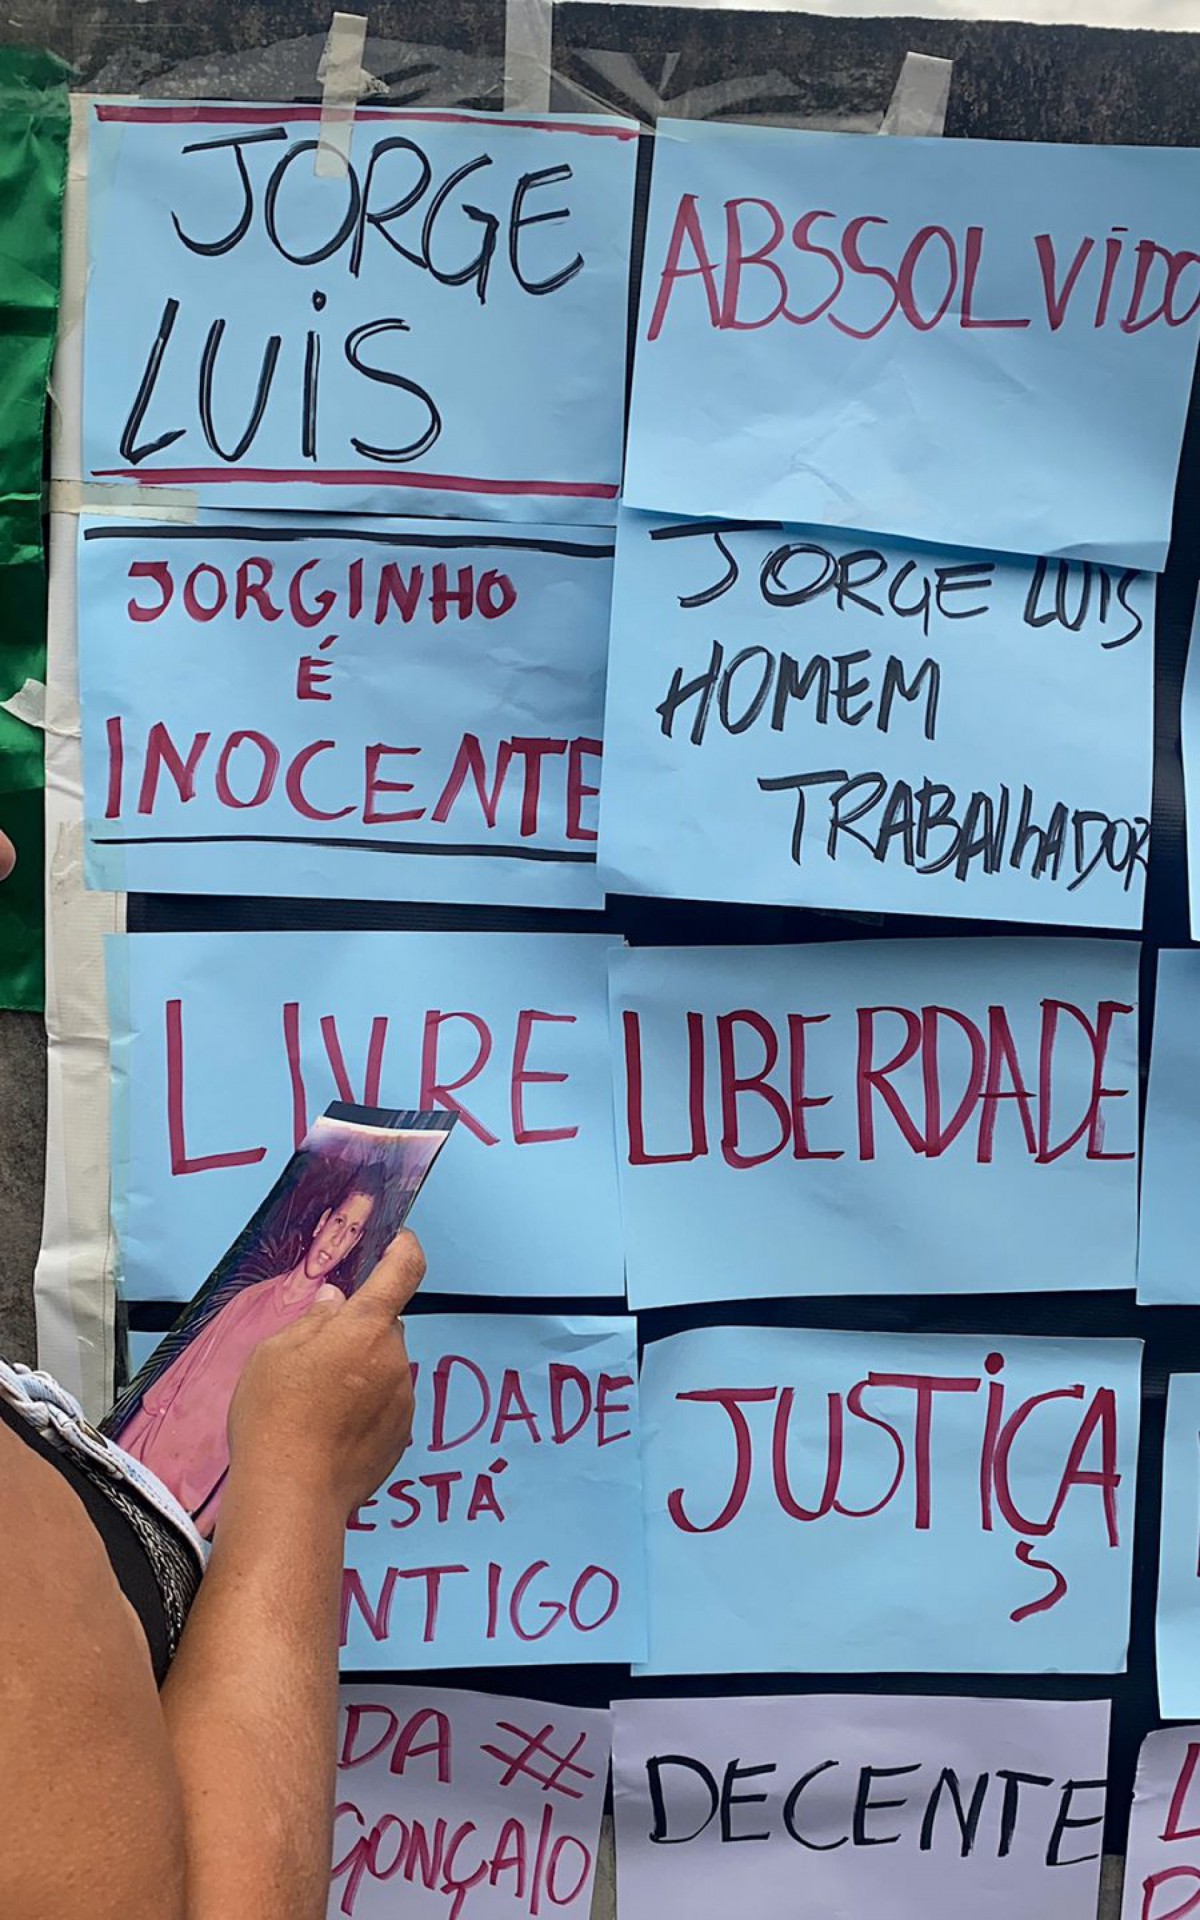 JORGE
LUIS
ABSSOLVIDO
JORGINHO
É
INOCENTE
JORGE LUIS
HOMEM
TRABALHADOR
LIVRE
LIBERDADE
ESTÁ
JUSTIÇA
DA #
GONÇALO
DECENTE